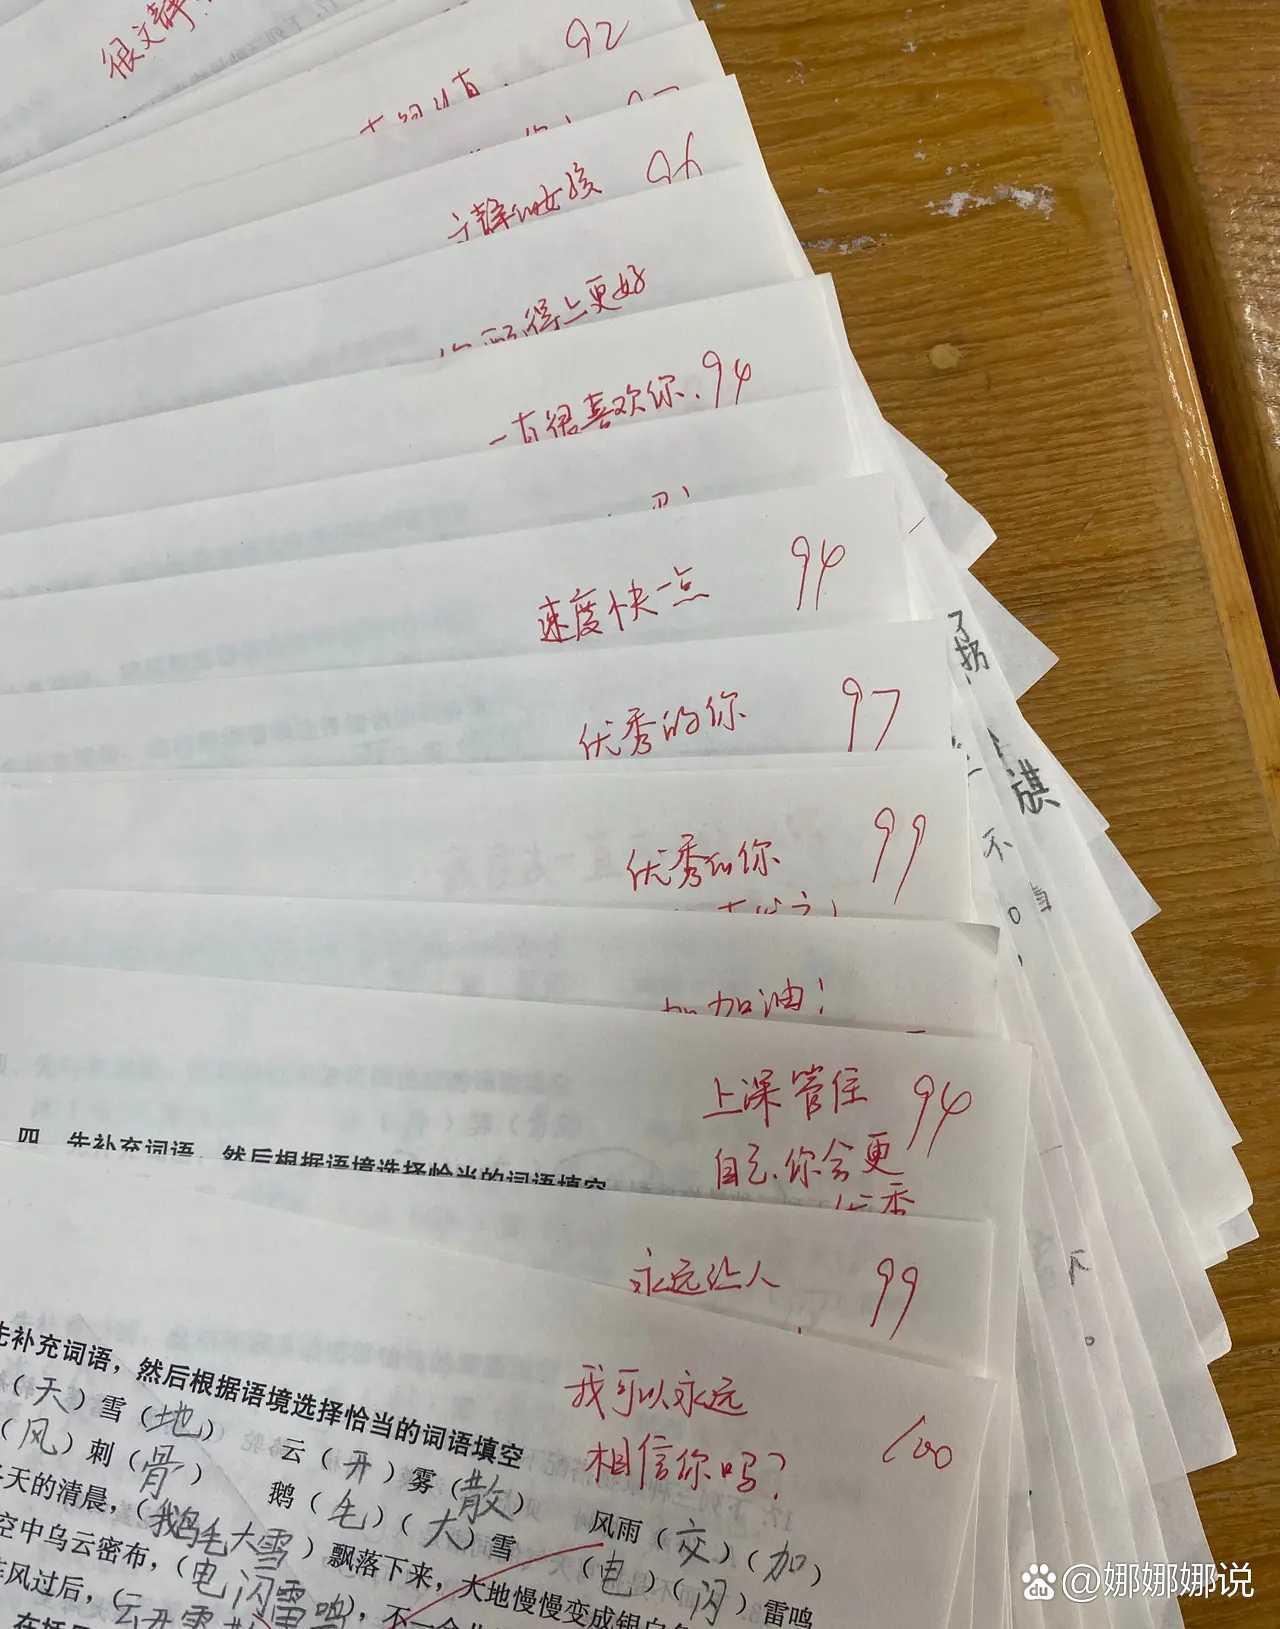 很文静
92
96
静的女孩
得上更好
一直很喜欢你.94
速度快一点 94
优秀的你 97
优秀的你 99
加加油!
上课管住 94
自己.你会更
优秀
四、先补充词语,然后根据语境选择恰当的词语填空
永远让人 99
我可以永远
相信你吗? 100
先补充词语,然后根据语境选择恰当的词语填空
(天)雪(地) 云(开)雾(散) 风雨(交)(加)
(风)刺(骨) 鹅(毛)(大)雪 (电)(闪)雷鸣
冬天的清晨,(鹅毛大雪)飘落下来,大地慢慢变成银白色
空中乌云密布,(电闪雷鸣),不一会儿
阵风过后,(云开雾散
旗
不
@娜娜娜说